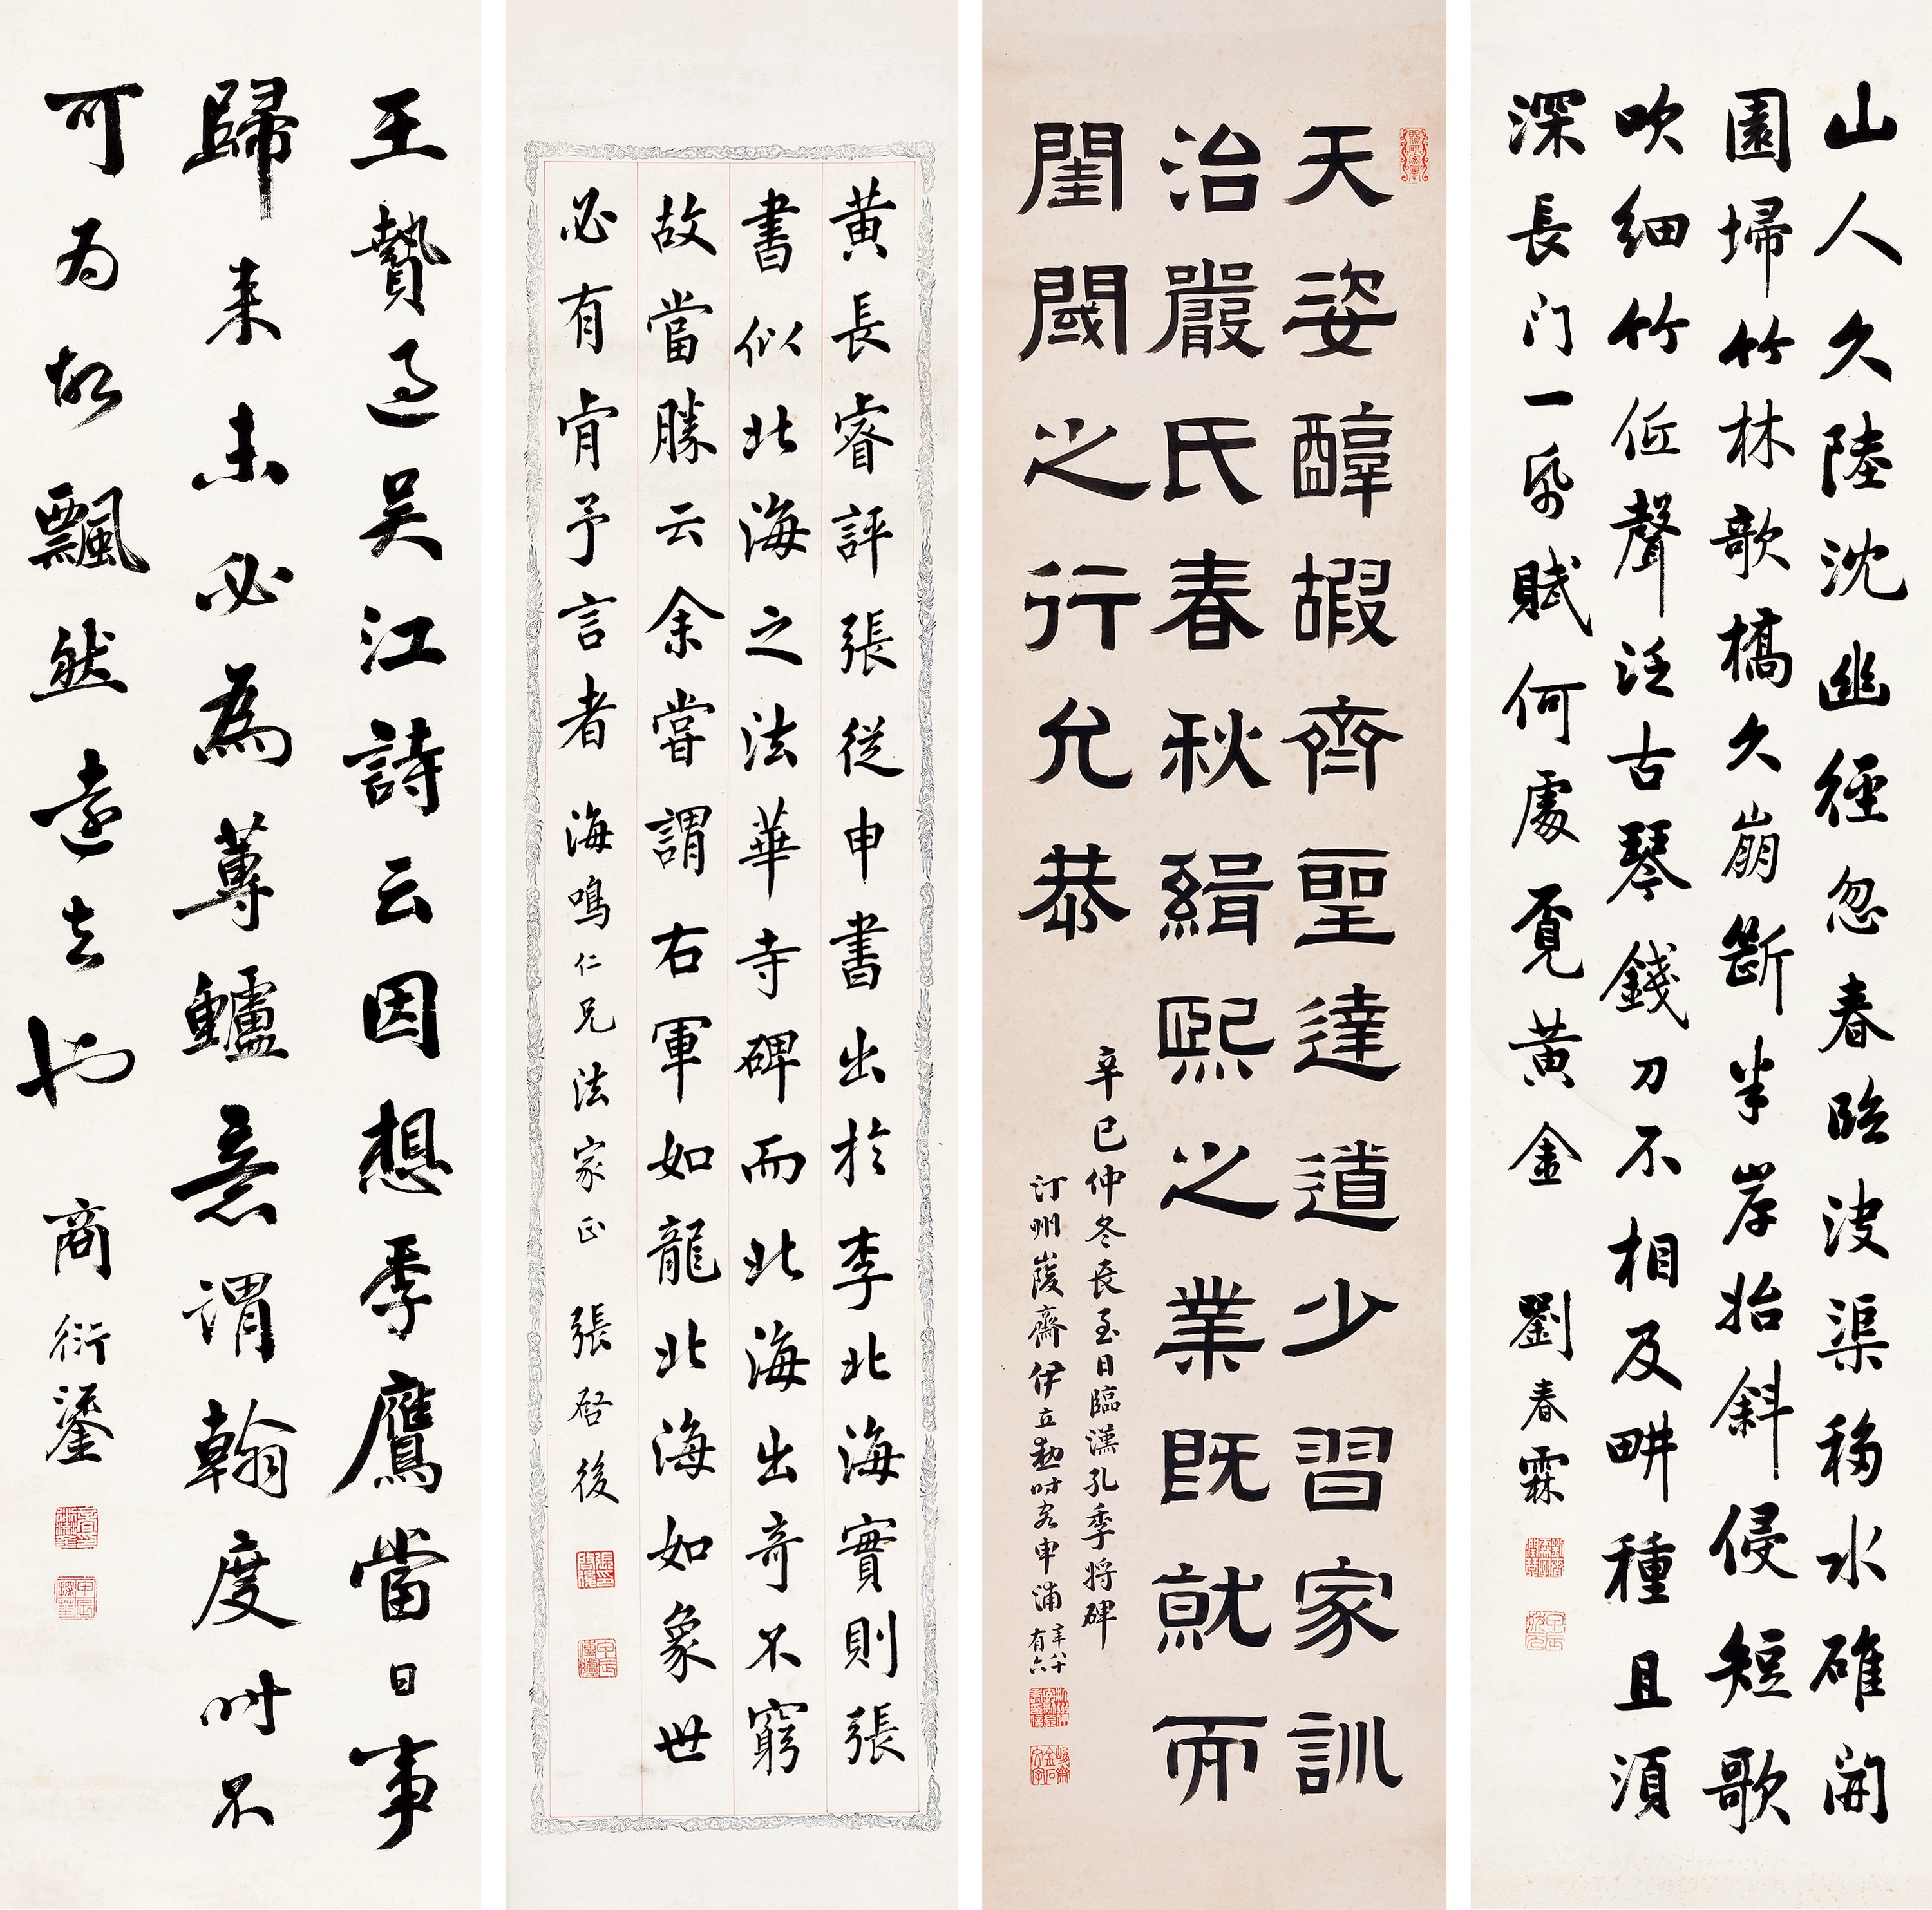 山人久陸沈幽徑忽春臨决渠移水碓開
園埽竹林欹橋久崩斷半岸始斜侵短歌
吹細竹低聲泛古琴錢刀不相及畊種且須
深長门一帋賦何處覓黃金 劉春霖
天姿醇嘏齊聖達道少習家訓
治嚴氏春秋緝熙之業既就而
閨閾之行允恭
辛巳仲冬長至日臨漢孔季將碑
汀州峻齋伊立勳時客申浦年八十有六
黃長睿評張從申書出於李北海實則張
書似北海之法華寺碑而北海出奇不窮
故當勝云余嘗謂右軍如龍北海如象世
必有肯予言者 海鳴仁兄法家正 張啓後
王贄過吳江詩云因想季鷹當日事
歸来未必為蓴鱸意謂翰度時不
可為故飄然遠去也 商衍鎏